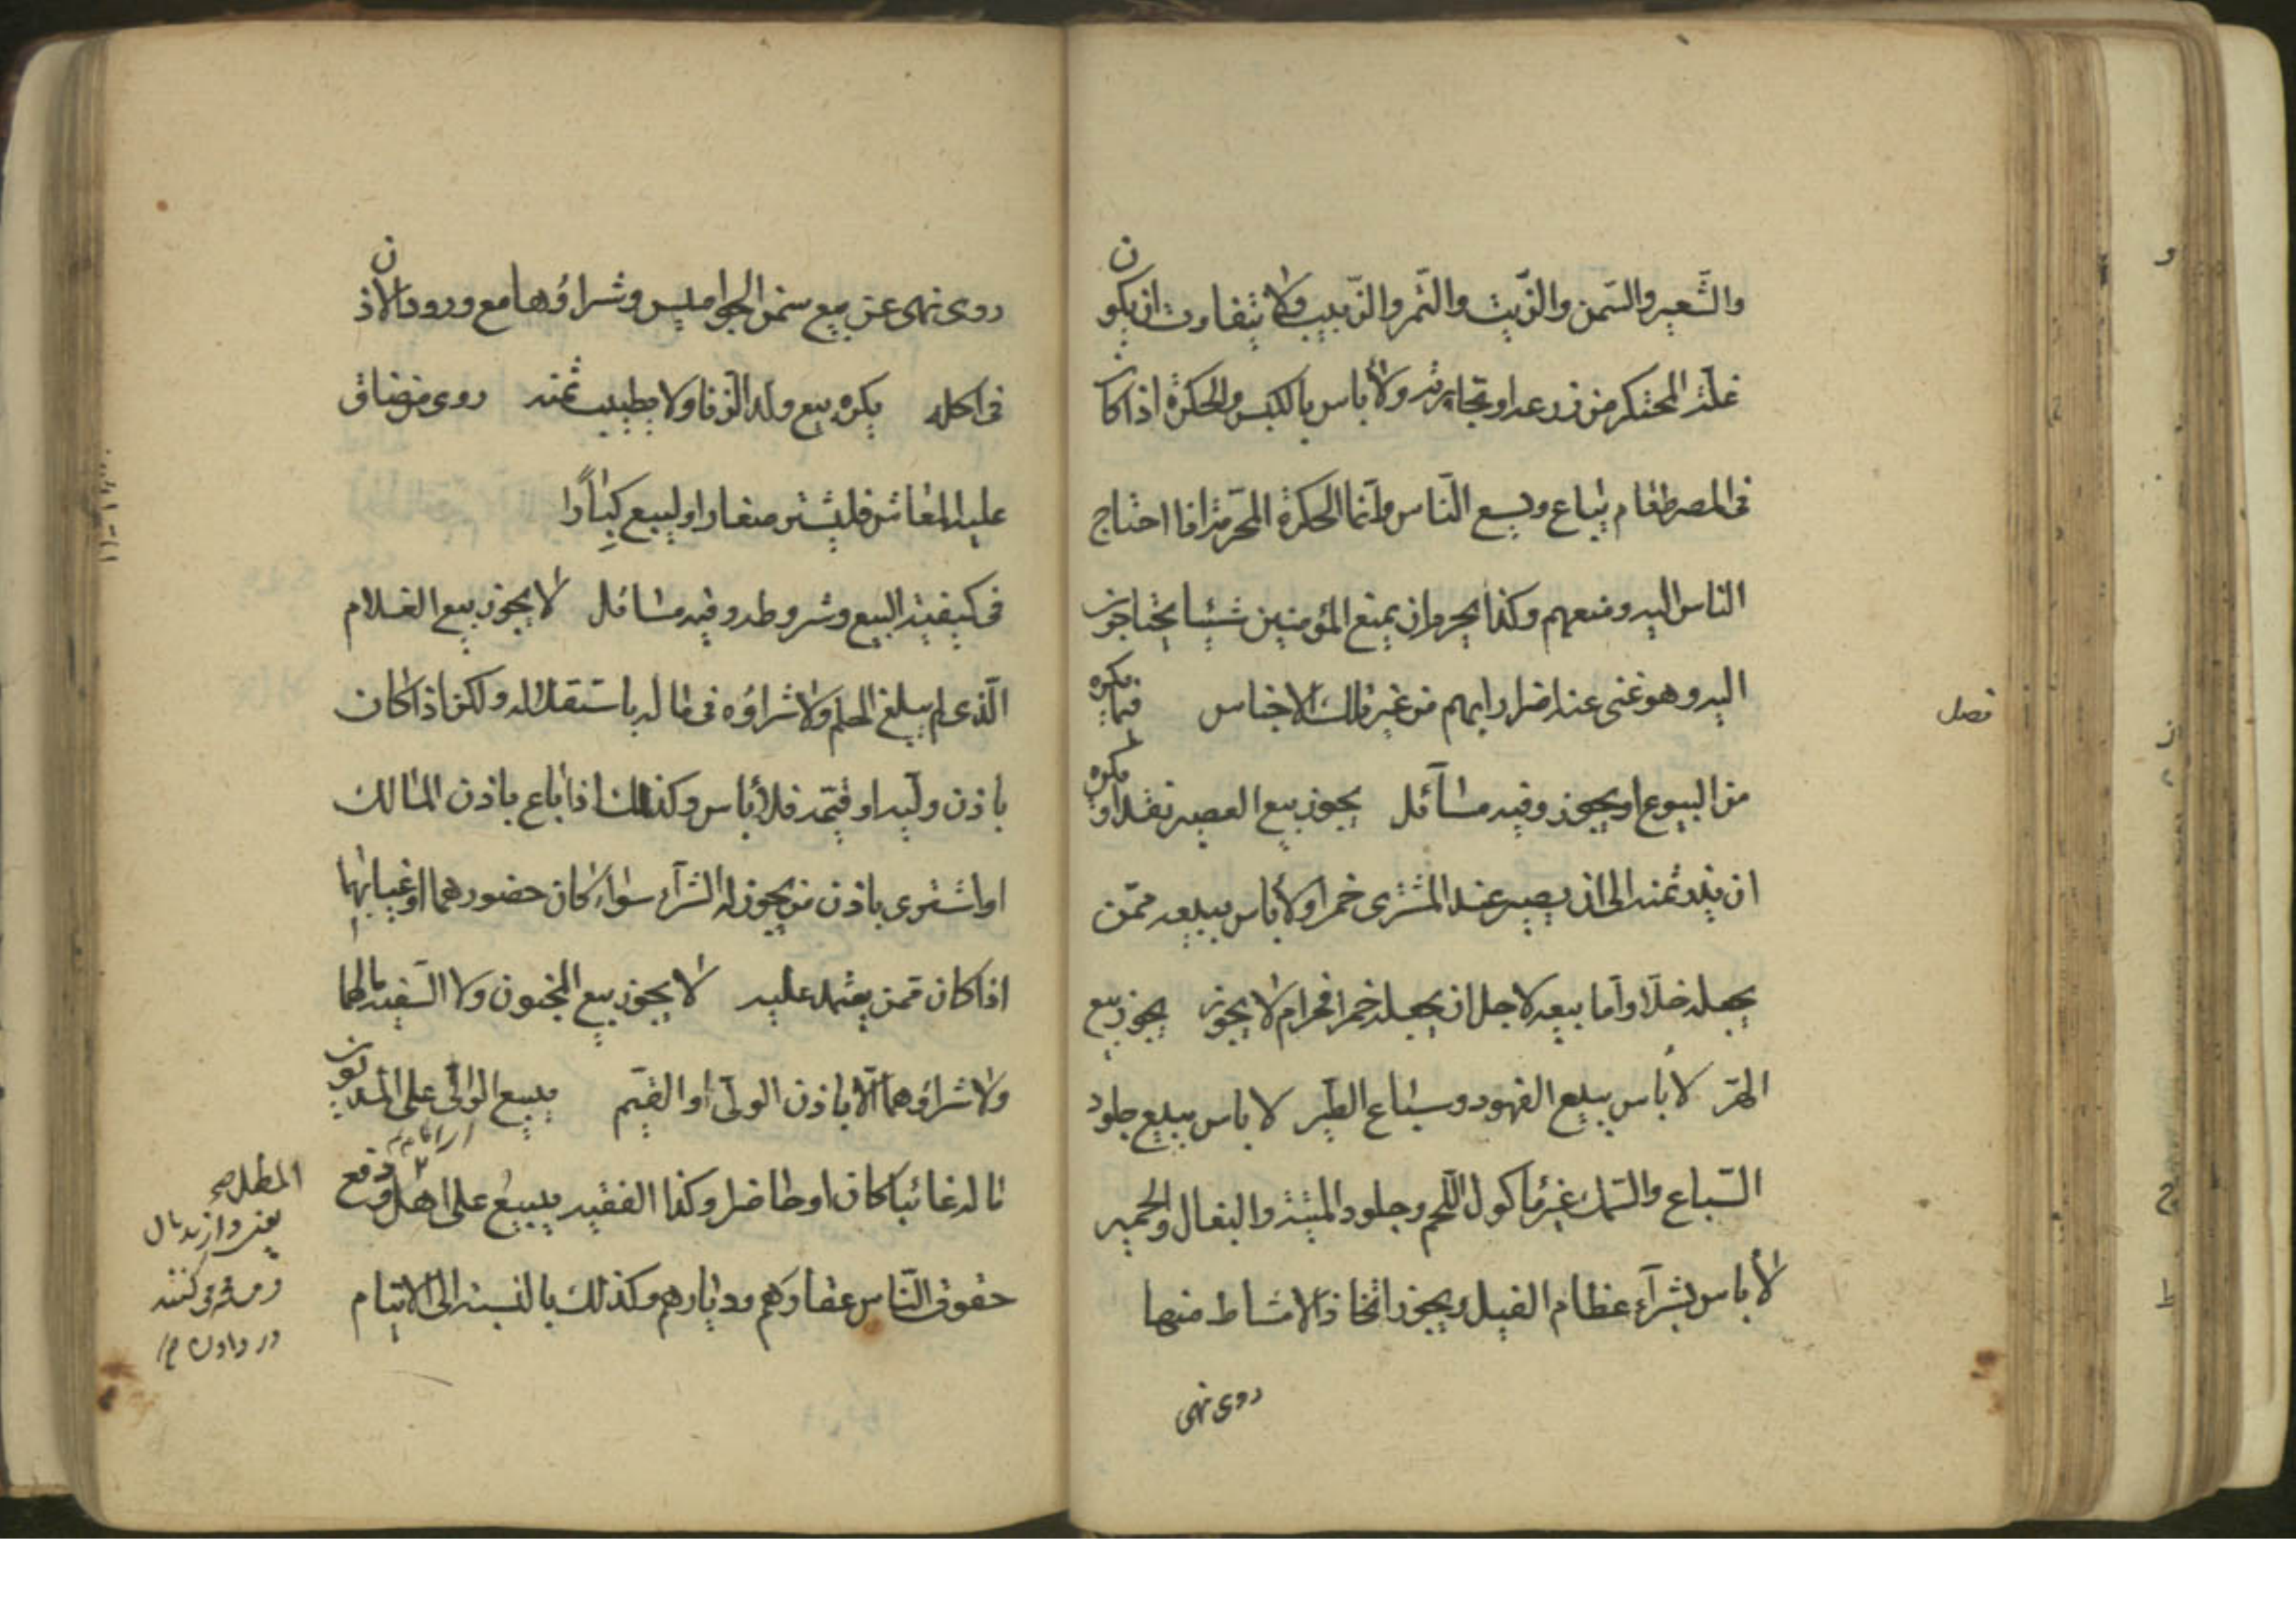 والشّعير والسّمن والزّيت والتّمر والزّبيب ولا يتفاوت ان يكون
غلّة المحتكر من زرعه او تجارته ولا بأس بالكبس والحكرة اذا كان
فى المصر طعام يباع ويسع النّاس وانّما الحكرة المحرّمة اذا احتاج
الناس اليه ومنعهم وكذا يحرم ان يمنع المؤمنين شيئا يحتاجون
اليه وهو غنى عنه اضرارا بهم من غير ذلك الاجناس فيما يكره
فصل
من البيوع او يجوز وفيه مسآئل يجوز بيع العصير نقدا ويكره
ان ثمنه الى ان يصير عند المشترى خمرا ولا بأس ببيعه ممّن
يجعله خلّا وامّا بيعه لاجل ان يجعله خمرا فحرام لا يجوز يجوز بيع
الهرّ لا بأس ببيع الفهود وسباع الطّير لا باس ببيع جلود
السّباع والسّمك غير مأكول اللّحم وجلود الميتة والبغال والحمير
لا بأس بشرآء عظام الفيل ويجوز اتّخاذ الامشاط منها
روى نهى
روى نهى عن بيع سخن الجواميس وشراؤها مع ورود الاذن
فى اكله يكره بيع ولد الزّنا ولا يطيب ثمنه روى من ضاق
عليه المعاش فليشتر صغارا وليبيع كبارًا
فى كيفيّة البيع وشروطه وفيه مسائل لا يجوز بيع الغلام
الّذى لم يبلغ الحلم ولا شراؤه فى ماله باستقلاله ولكن اذا كان
باذن وليّه او قيّمه فلا بأس وكذلك اذا باع باذن المالك
او اشترى باذن من يجوز له الشرآء سواء كان حضورهما او غيابهما
اذا كان ممّن يعتمد عليه لا يجوز بيع المجنون ولا السّفيه مالهما
ولا شراؤهما الّا باذن الولىّ او القيّم يبيع الوالى على المديون
ماله غائبا كان او حاضرا وكذا الفقيه يبيع على اهل دفع
حقوق النّاس عقارهم وديارهم وكذلك بالنسبة الى الايتام